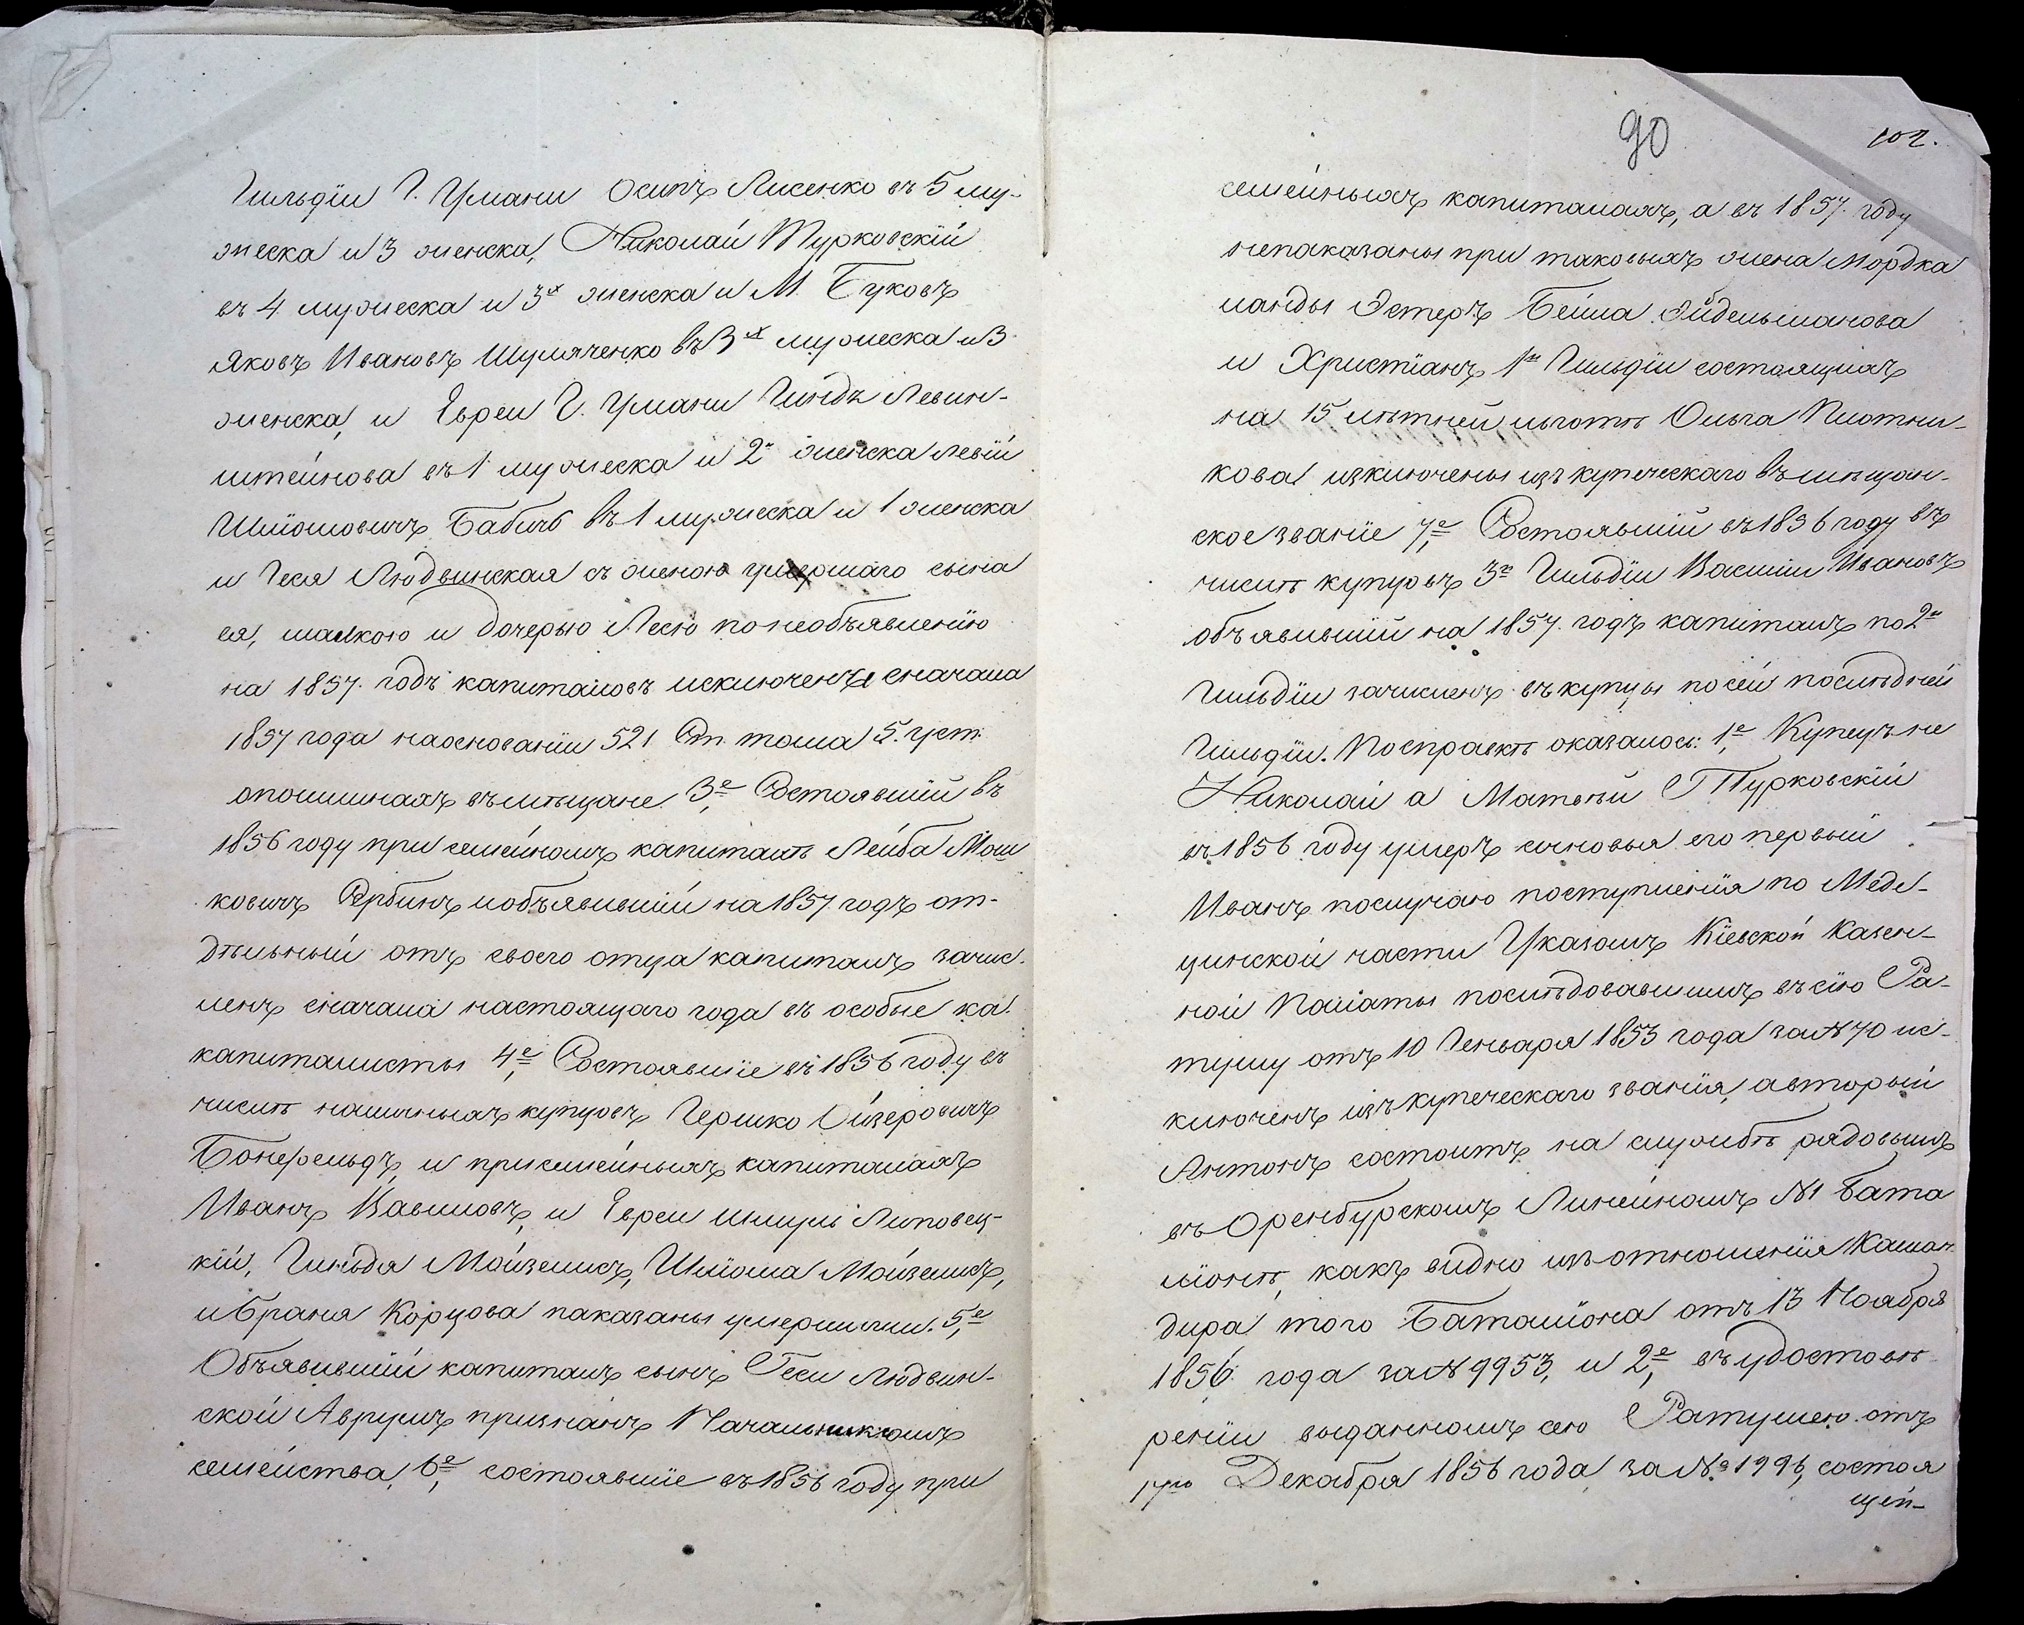 Гильдіи Г. Умани Осипъ Лисенко въ 5 му-
жеска и 3 женска, Николай Турковскій
въ 4 мужеска и 3х женска и М. Буковъ
Яковъ Ивановъ Шуляченко въ 3х мужеска и 3
женска, и Евреи Г. Умани Гиндъ Левин-
штейнова въ 1 мужеска и 2х женска Левій
Шліомовичъ Бабичъ въ 1 мужеска и 1 женска
и Геся Людвинская съ женою умершаго сына
ея, малкою и дочерью Лесю по необъявленію
на 1857. годъ капиталовъ исключены сначала
1857 года на основаніи 521 Ст. тома 5. уст.
опошлинахъ въ мѣщане. 3е, Состоявшій въ
1856 году при семейномъ капиталѣ Лейба Мош
ковичъ Сербинъ иобъявившій на 1857 годъ от-
дѣльный отъ своего отца капиталъ зачис.
ленъ сначала настоящаго года въ особые ка.
капиталисты 4е, Состоявшіе въ 1856 году въ
числѣ наличныхъ купцовъ Гершко Ойзеровичъ
Бонфельдъ, и при семейныхъ капиталахъ
Иванъ Вавиловъ, и Евреи Шмуль Липовец-
кій, Гильдя Мойзелисъ, Шліома Мойзелисъ,
и Браня Корцова паказаны умершими. 5е,
Объявившій капиталъ сынъ Геси Людвин-
ской Аврумъ признанъ Начальникомъ
семейства, 6е, состоявшіе въ 1856 году при
90
102.
семейныхъ капиталахъ, а въ 1857. году
непаказаны при таковыхъ жена Мордка
ланды Эстеръ Бейла Эйдельманова
и Христіанъ 1й Гильдіи состоящихъ
на 15 лѣтней льготѣ Ольга Плотни-
кова изключены изъ купеческаго въ мѣщан-
ское званіе 7е, Состоявшій въ 1856 году въ
числѣ купцовъ 3й Гильдіи Василій Ивановъ
объявившій на 1857. годъ капиталъ по 2й
Гильдіи зачисленъ въ купцы по сей послѣдней
Гильдіи. По справкѣ оказалось: 1е, Купецъ не
Николай а Матвѣй Турковскій
въ 1856 году умеръ сыновья его первый
Иванъ послучаю поступленія по Меди-
цинской части Указомъ Кіевской Казен-
ной Палаты послѣдовавшимъ въ сію Ра-
тушу отъ 10 Генваря 1853 года за № 70 ис-
ключенъ изъ купеческаго званія, авторый
Антонъ состоитъ на службѣ рядовымъ
въ Оренбургскомъ Линейномъ №1 Бата
ліонѣ, какъ видно изъ отношенія Коман
дира того Баталіона отъ 13 Ноября
1856. года за № 9953, и 2е, въ удостовѣ
реніи выданномъ сею Ратушею отъ
17го Декабря 1856 года за № 1996, состоя
щей-